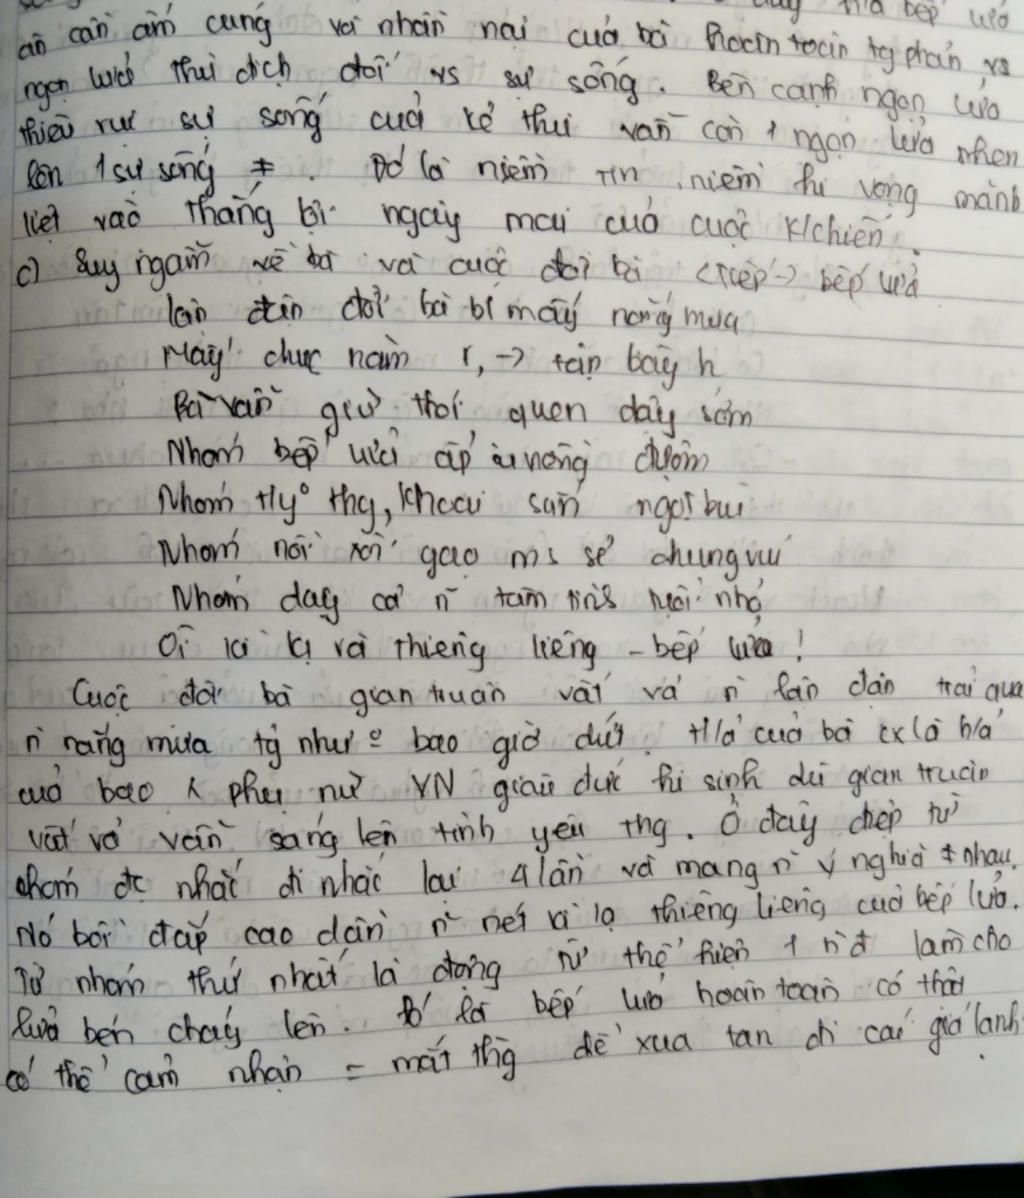 nhà bếp lửa
ân cần ấm cúng và nhẫn nại của bà hoàn toàn tg phản vs
ngọn lửa thù địch đối vs sự sống. Bên cạnh ngọn lửa
thiêu rụi sự sống của kẻ thù vẫn còn 1 ngọn lửa nhen
lên 1 sự sống ≠. Đó là niềm tin, niềm hi vọng mãnh
liệt vào thắng lợi ngày mai của cuộc k/chiến.
c) Suy ngẫm về bà và cuộc đời bà (tiếp) -> bếp lửa
lận đận đời bà bt mấy nắng mưa
Mấy chục năm r, -> tận bây h
Bà vẫn giữ thói quen dậy sớm
Nhóm bếp lửa ấp iu nồng đượm
Nhóm t/y° thg, khoai sắn ngọt bùi
Nhóm nồi xôi gạo ms sẻ chung vui
Nhóm dậy cả n~ tâm tình tuổi nhỏ
Ôi kì lạ và thiêng liêng - bếp lửa!
Cuộc đời bà gian truân vất vả n~ lận đận trải qua
n~ nắng mưa tg như o bao giờ dứt. H/ả của bà cx là h/ả
của bao phụ nữ VN giàu đức hi sinh dù gian truân
vất vả vẫn sáng lên tình yêu thg. Ở đây điệp từ
nhóm đc nhắc đi nhắc lại 4 lần và mang n~ ý nghĩa ≠ nhau.
Nó bồi đắp cao dần n~ nét kì lạ thiêng liêng của bếp lửa.
Từ nhóm thứ nhất là động từ thể hiện 1 hđ làm cho
lửa bén cháy lên. Đó là bếp lửa hoàn toàn có thật
có thể cảm nhận = mắt thg để xua tan đi cái giá lạnh.